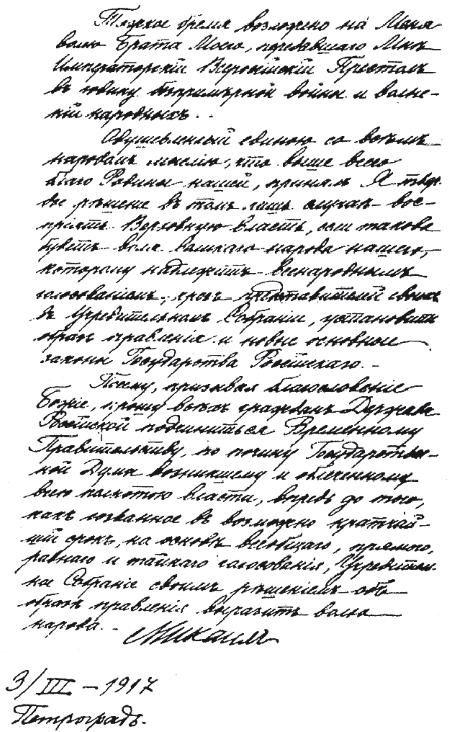 Тяжкое бремя возложено на Меня
волею Брата Моего, передавшего Мнѣ
Императорскій Всероссійскій Престолъ
въ годину безпримѣрной войны и волне-
ній народныхъ.
Одушевленный единою со всѣмъ
народомъ мыслію, что выше всего
благо Родины нашей, принялъ Я твер-
дое рѣшеніе въ томъ лишь случаѣ вос-
пріять Верховную власть, если такова
будетъ воля великаго народа нашего,
которому надлежитъ всенароднымъ
голосованіемъ, чрезъ представителей своихъ
въ Учредительномъ Собраніи, установить
образъ правленія и новые основные
законы Государства Россійскаго.
Посему, призывая благословеніе
Божіе, прошу всѣхъ гражданъ Державы
Россійской подчиниться Временному
Правительству, по почину Государствен-
ной Думы возникшему и облеченному
всею полнотою власти, впредь до того,
какъ созванное въ возможно кратчай-
шій срокъ, на основѣ всеобщаго, прямого,
равнаго и тайнаго голосованія, Учредитель-
ное Собраніе своимъ рѣшеніемъ объ
образѣ правленія выразитъ волю
народа.
Михаилъ
3/III - 1917
Петроградъ.